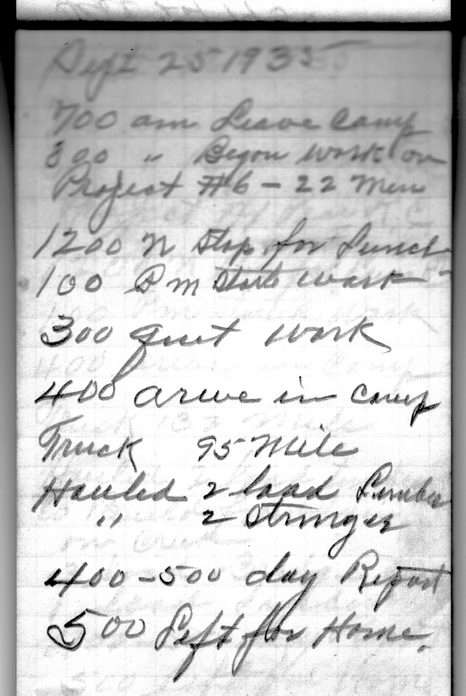 Sept 25 1935
700 am Leave Camp
800 " Begon work on
Project #6 - 22 Men
1200 N Stop for Lunch
100 Pm Start work
300 quit work
400 arive in Camp
Truck 95 Mile
Hauled 2 load Lumber
" 2 Stringer
400-500 day Report
500 Left for Home.